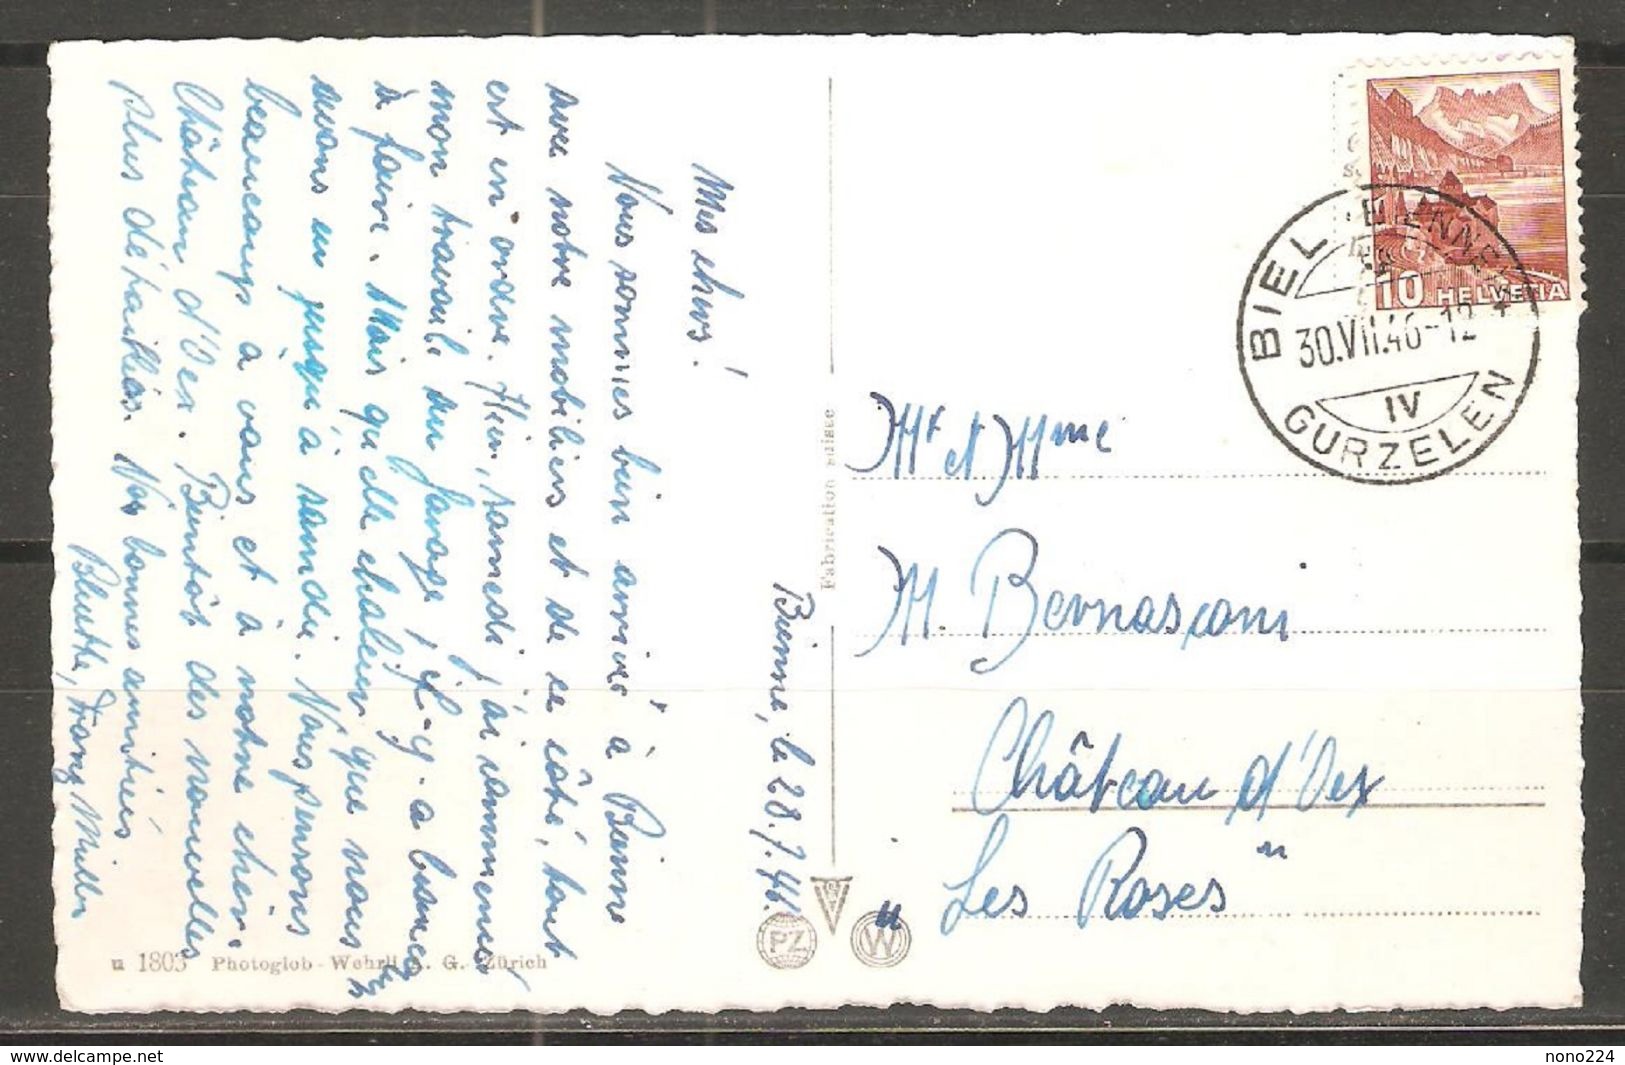 Bienne, le 28.7.46.
Mes chers!
Nous sommes bien arrivés à Bienne
avec notre mobiliers et de ce côté, tout
est en ordre. Hier, samedi j'ai commencé
mon travail au garage, il-y-a beaucoup
à faire. Mais quelle chaleur que nous
avons eu jusqu'à samedi. Nous pensons
beaucoup à vous et à notre cher
Château d'Oex. Bientôt des nouvelles
plus détaillées. Nos bonnes amitiés
Bluette, Franz Müller
Mr et Mme
M. Bernasconi
Château d'Oex
"Les Roses"
10 HELVETIA
BIEL · BIENNE
30.VII.46-12
IV
GURZELEN
Fabrication suisse
PZ
W
u 1803 Photoglob-Wehrli A. G. Zürich
www.delcampe.net
nono224